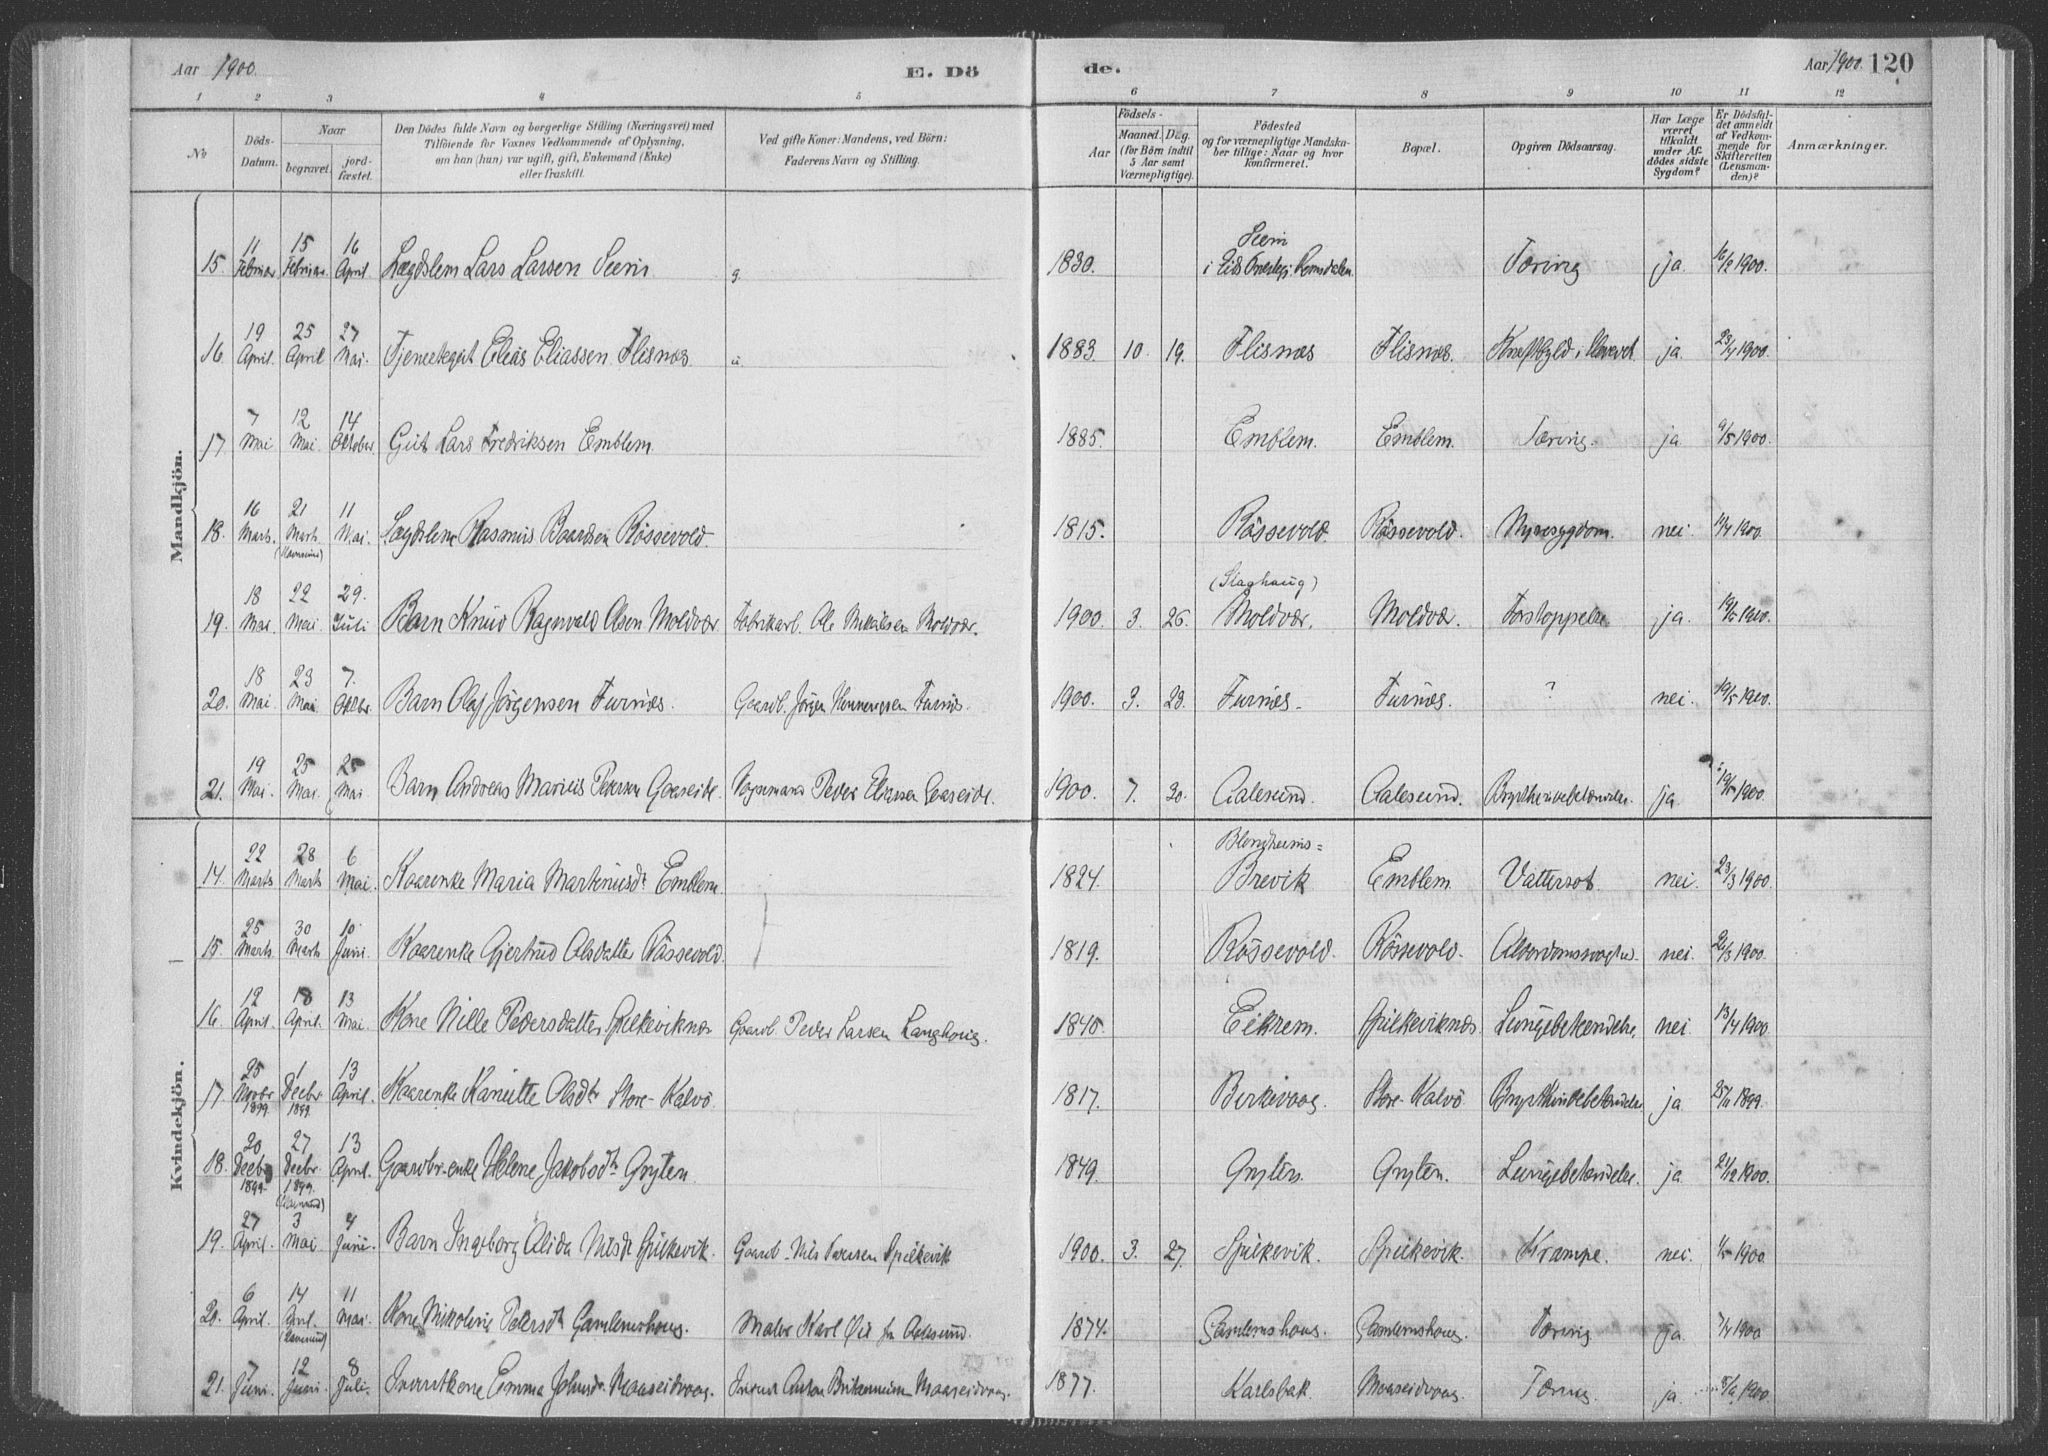 Aar 1900. E. Dö de. Aar 1900. 120
1 2 3 4 5 6 7 8 9 10 11 12
No
Döds-Datum.
Naar
begravet.
jordfæstet.
Den Dödes fulde Navn og borgerlige Stilling (Næringsvei) med
Tilföiende for Voxnes Vedkommende af Oplysning,
om han (hun) var ugift, gift, Enkemand (Enke)
eller fraskilt.
Ved gifte Koner: Mandens, ved Börn:
Faderens Navn og Stilling.
Födsels-
Aar
Maaned. Dag.
(for Börn indtil
5 Aar samt
Værnepligtige).
Födested
og for værnepligtige Mandskaber tillige: Naar og hvor
konfirmeret.
Bopæl.
Opgiven Dödsaarsag.
Har Læge
været
tilkaldt
under Afdödes sidste
Sygdom?
Er Dödsfaldet anmeldt
af Vedkommende for
Skifteretten
(Lensmanden)?
Anmærkninger.
Mandkjön.
15. 11 Februar 15 Februar 16 April Lægdslem Lars Larsen Seem g 1830. Seem i Eids Romsdalen Tæring ja. 16/2 1900.
16. 19 April. 25 April 27 Mai. Tjenestegut Elias Eliassen Flisnæs. u. 1883. 10. 19. Flisnæs Flisnæs. ja. 23/4 1900.
17. 7 Mai 12 Mai. 14 Oktober. Gut Lars Fredriksen Emblem. 1885. Emblem. Emblem. Tæring. ja 9/5 1900.
18. 16 Marts. 21 Marts. 11 Mai. Lægdslem Rasmus Baardsen Rössevold. 1815. Rössevold Rössevold. Nyresygdom. nei. 1900.
19. 18 Mai. 22 Mai. 29. Juli Barn Knud Ragnvald Olsen Moldvær Fabrikarb. Ole Mikalsen Moldvær. 1900. 3. 26. (Slaghaug) Moldvær. Moldvær. Forstoppelse ja. 19/5 1900.
20. 18 Mai. 23 Mai. 7. Oktbr. Barn Olaf Jörgensen Furnæs. Gaardb. Jörgen Furnæs. 1900. 3. 23. Furnæs. Furnæs. ? nei. 19/5 1900.
21. 19 Mai. 25 Mai. 25 Mai Barn Andreas Marius Petersen Gaaseide. Peder Eliassen Gaaseide. 1900. 7. 20. Aalesund. Aalesund. Brysthindebetændelse. ja 1900.
Kvindekjön.
14. 22 Marts 28 Marts 6 Mai. Kaarenke Maria Martinusdt Emblem. 1824. Blengheims= Brevik Emblem. Vattersot. nei. 23/3 1900.
15. 25 Marts. 30 Marts 10 Juni. Kaarenke Gjertrud Olsdatter Rössevold. 1819. Rössevold. Rössevold. Alderdomssvaghed. nei. 26/3 1900.
16 12 April. 18 April. 13 Mai. Kone Nille Pedersdatter Spilkeviknæs Gaardb. Peder Larsen Langhoug. 1840. Eikrem. Spilkeviknæs Lungebetændelse. nei 13/4 1900.
17 25 Novbr 1899 1 Decbr 1899 13 April. Kaarenke Kanutte Olsdtr Store-Kalvö 1817. Birkevaag. Store-Kalvö Brysthindebetændelse ja 25/11 1899.
18. 20 Decbr 1899 27 Decbr. 1899. 13 April. Gaardbr.enke Helene Jakobsdtr Gryten. 1849. Gryten. Gryten. Lungebetændelse. ja. 21/12 1900.
19. 27 April. 3 Mai 4 Juni. Barn Ingeborg Alida Nilsdt Spilkevik. Gaardb. Nils Iversen Spilkevik 1900. 3. 27. Spilkevik. Spilkevik. Krampe. nei. 1/5 1900.
20. 6 April. 14 April. 11 Mai. Kone Nikoline Petersdt Gamlemshoug. Maler Karl Öie fra Aalesund. 1874. Gamlemshoug. Gamlemshoug. Tæring ja 7/4 1900
21. 7 Juni. 12 Juni. 8 Juli. Inderstkone Emma Johnsdt Maaseidvaag. Inderst Anton Maaseidvaag. 1877. Karlsbak. Maaseidvaag. Tæring ja. 8/6 1900.